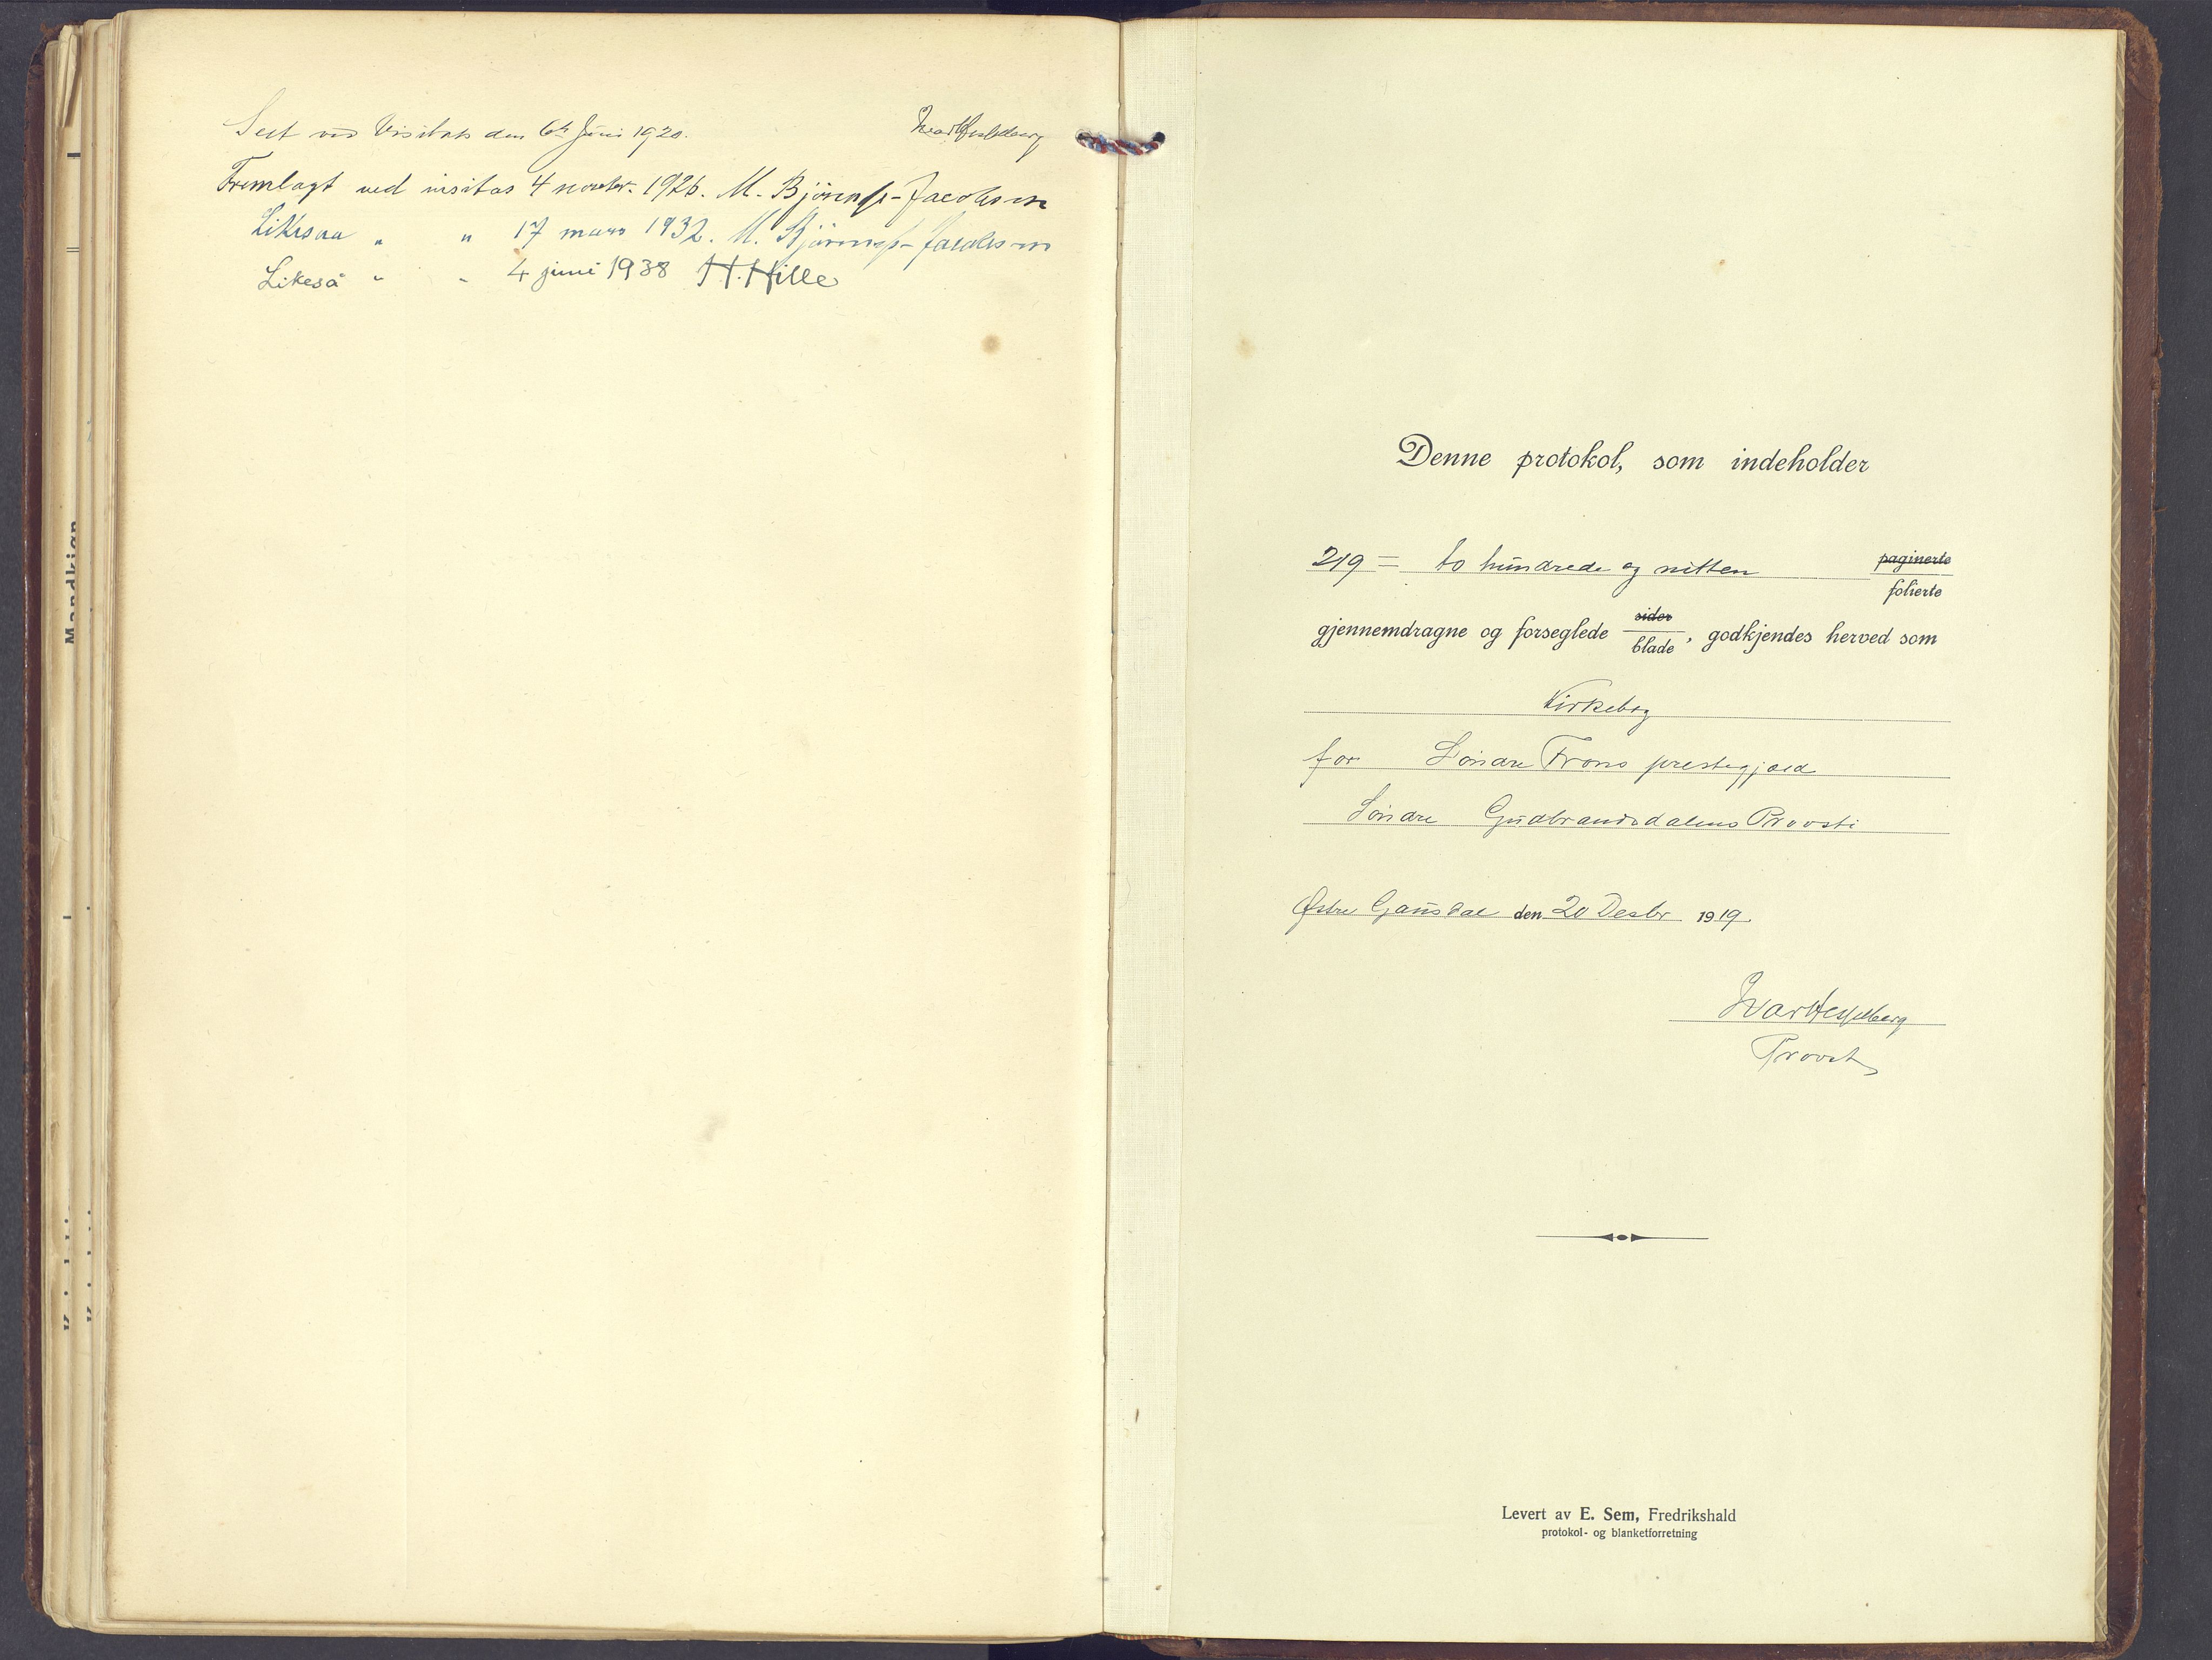 Seet ved Visitats den 6te Juni 1920. Ivar Hesselberg
Fremlagt ved visitas 4 novebr. 1926. M. Bjönness-Jacobsen
Likesaa " " 17 mars 1932. M. Bjönness-Jacobsen
Likeså " " 4 juni 1938 H. Hille
Mandkjøn
Denne protokol, som indeholder
219 = to hundrede og nitten paginerte
folierte
gjennemdragne og forseglede sider
blade, godkjendes herved som
Kirkebog
for Søndre Frons prestegjæld
Søndre Gudbrandsdalens Provsti
Østre Gausdal den 20 Desbr 1919.
Ivar Hesselberg
Provst
Levert av E. Sem, Fredrikshald
protokol- og blanketforretning